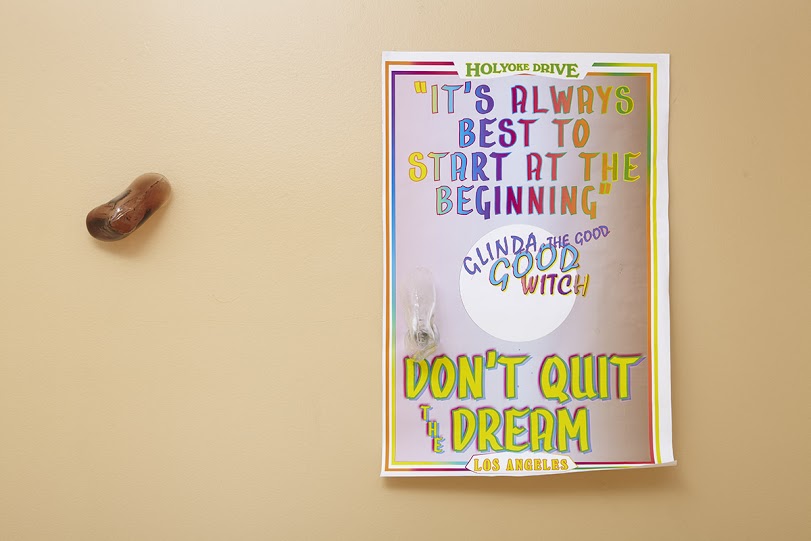 HOLYOKE DRIVE
"IT'S ALWAYS
BEST TO
START AT THE
BEGINNING"
GLINDA, THE GOOD
GOOD
WITCH
DON'T QUIT
THE DREAM
LOS ANGELES